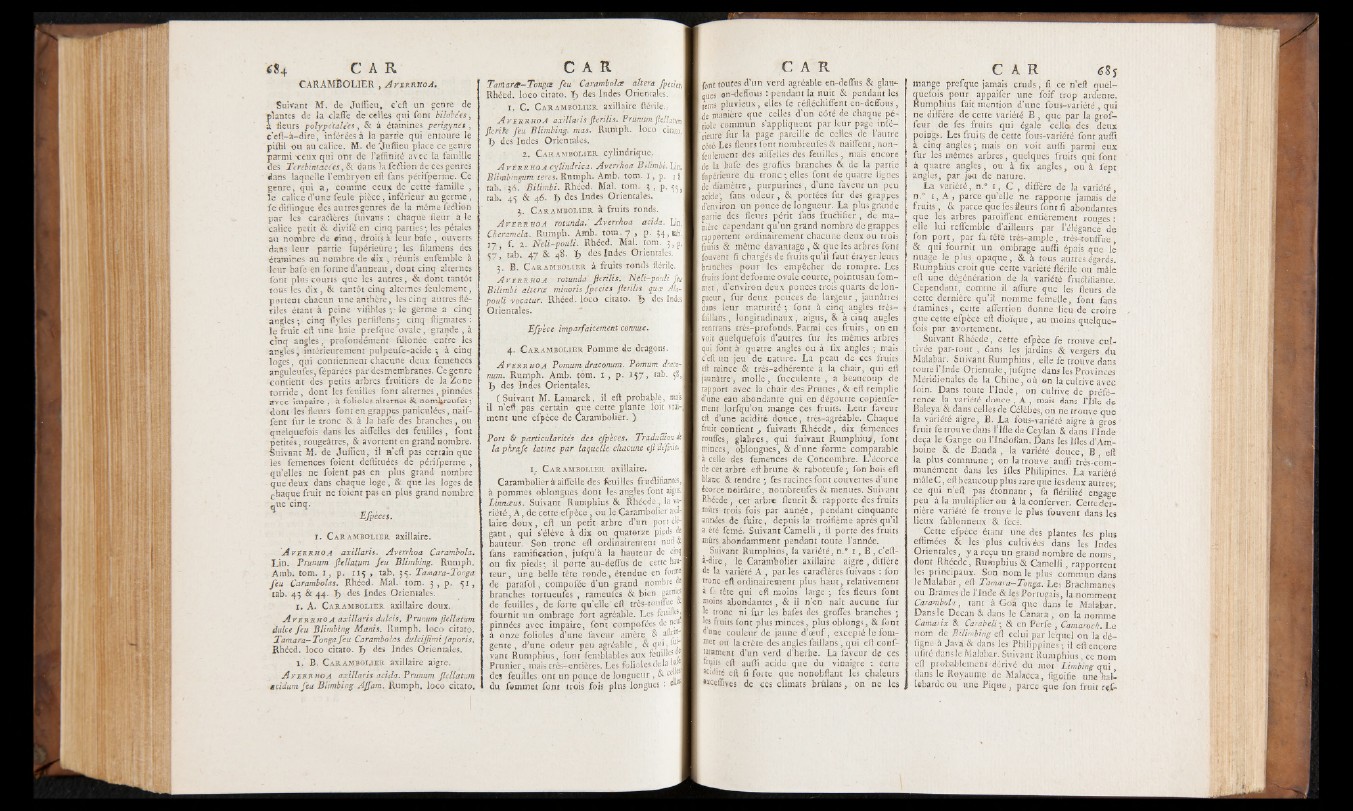 684 C A R
CARAMBOLIER , AVERRHOA.
Suivant M. de Juſſieu, c'eſt un genre de
plantes de la claſſe de celles qui ſont bilobées,
à fleurs polypétalées, & à étamines perigynes,
c'eſt-à-dire, inſérées à la partie qui entoure le
piſtil ou au calice. M. de Juſſieu place ce genre
parmi ceux qui ont de l'affinité avec la famille
des Terébintacées, & dans la ſection de ces genres
dans laquelle l'embryon eſt ſans périſperme. Ce
genre, qui a, comme ceux de cette famille,
le calice d'une ſeule pièce, inférieur au germe,
ſe diſtingue des autres genres de la même ſection
par les caractères ſuivans : chaque fleur a le
calice petit & diviſé en cinq parties ; les pétales
au nombre de cinq, droits à leur baſe, ouverts
dans leur partie ſupérieure ; les filamens des
étamines au nombre de dix, réunis enſemble à
leur baſe en forme d'anneau, dont cinq alternes
ſont plus courts que les autres, & dont tantôt
tous les dix, & tantôt cinq alternes ſeulement,
portent chacun une anthère, les cinq autres ſté-
riles étant à peine viſibles ; le germe a cinq
angles ; cinq ſtyles perſiſtens ; cinq ſtigmates :
le fruit eſt une baie preſque ovale, grande, à
cinq angles, profondément ſillonée entre les
angles, intérieurement pulpeuſe-acide ; à cinq
loges, qui contiennent chacune deux ſemences
anguleuſes, ſéparées par des membranes. Ce genre
contient des petits arbres fruitiers de la Zone
torride, dont les feuilles ſont alternes, pinnées
avec impaire, à folioles alternes & nombreuſes ;
dont les fleurs ſont en grappes paniculées, naiſ-
ſent ſur le tronc & à la baſe des branches, ou
quelquefois dans les aiſſelles des feuilles, ſont
petites, rougeâtres, & avortent en grand nombre.
Suivant M. de Juſſieu, il n'eſt pas certain que
les ſemences ſoient deſtituées de périſperme,
qu'elles ne ſoient pas en plus grand nombre
que deux dans chaque loge, & que les loges de
chaque fruit ne ſoient pas en plus grand nombre
que cinq.
Eſpèces.
1. CARAMBOLIER axillaire.
AVERRHOA axillaris. Averrhoa Carambola.
Lin. Prunum ſtellatum ſeu Blimbing. Rumph.
Amb. tom. 1, p. 115, tab. 35. Tamara-Tonga
ſeu Carambolas. Rhéed. Mal. tom. 3, p. 51,
tab. 43 & 44. ♄ des Indes Orientales.
1. A. CARAMBOLIER axillaire doux.
AVERRHOA axillaris dulcis. Prunum ſtellatum
dulce ſeu Blimbing Manis. Rumph. loco citato.
Tamara-Tonga ſeu Carambolas dulciſſimi ſaporis.
Rhéed. loco citato. ♄ des Indes Orientales.
1. B. CARAMBOLIER axillaire aigre.
AVERRHOA axillaris acida. Prunum ſtellatum
acidum ſeu Blimbing Aſſam. Rumph. loco citato.
C A R
Tamara-Tongæ ſeu Carambolæ altera ſpecies.
Rhéed. loco citato. ♄ des Indes Orientales.
1. C. CARAMBOLIER axillaire ſtérile.
AVERRHOA axillaris ſterilis. Prunum ſtellatum
ſterile ſeu Blimbing. mas. Rumph. loco citato.
♄ des Indes Orientales.
2. CARAMBOLIER cylindrique.
AVERRHOA cylindrica. Averrhoa Bilimbi. Lin.
Blimbingum teres. Rumph. Amb. tom. 1, p. 118
tab. 36. Bilimbi. Rhéed. Mal. tom. 3, p. 55,
tab. 45 & 46. ♄ des Indes Orientales.
3. CARAMBOLIER à fruits ronds.
AVERRHOA rotunda. Averrhoa acida. Lin
Cheramela. Rumph. Amb. tom. 7, p. 34, tab.
17, f. 2. Neli-pouli. Rhéed. Mal. tom. 3, p.
57, tab. 47 & 48. ♄ des Indes Orientales.
3. B. CARAMBOLIER à fruits ronds ſtérile.
AVERRHOA rotunda ſterilis. Neli-pouli ſeu
Bilimbi altera minoris ſpecies ſterilis quæ Ala-
pouli vocatur. Rhéed. loco citato. ♄ des Indes
Orientales.
Eſpèce imparfaitement connue.
4. CARAMBOLIER Pomme de dragons.
AVERRHOA Pomum draconum. Pomum draco-
num. Rumph. Amb. tom. 1, p. 157, tab. 58,
♄ des Indes Orientales.
( Suivant M. Lamarck, il eſt probable, mais
il n'eſt pas certain que cette plante ſoit vrai-
ment une eſpèce de Carambolier. )
Port & particularités des eſpèces. Traduction de
la phraſe latine par laquelle chacune eſt définie.
1. CARAMBOLIER axillaire.
Carambolier à aiſſelle des feuilles fructifiantes,
à pommes oblongues dont les angles ſont aigus.
Linnæus. Suivant Rumphius & Rhéede, la va-
riété, A, de cette eſpèce, ou le Carambolier axil-
laire doux, eſt un petit arbre d'un port élé-
gant, qui s'élève à dix ou quatorze pieds de
hauteur. Son tronc eſt ordinairement nud &
ſans ramification, juſqu'à la hauteur de cinq
ou ſix pieds ; il porte au-deſſus de cette hau-
teur, une belle tête ronde, étendue en forme
de paraſol, compoſée d'un grand nombre de
branches tortueuſes, rameuſes & bien garnies
de feuilles, de ſorte qu'elle eſt très-touffue &
fournit un ombrage fort agréable. Les feuilles,
pinnées avec impaire, ſont compoſées de neuf
à onze folioles d'une ſaveur amère & aſtrin-
gente, d'une odeur peu agréable, & qui, ſui-
vant Rumphius, ſont ſemblables aux feuilles de
Prunier, mais très-entières. Les folioles de la baſe
des feuilles ont un pouce de longueur, & celles
du ſommet ſont trois fois plus longues : elles
C A R
ſont toutes d'un verd agréable en-deſſus & glau-
ques en-deſſous : pendant la nuit & pendant les
tems pluvieux, elles ſe réfléchiſſent en-deſſous,
de manière que celles d'un côté de chaque pé-
tiole commun s'appliquent par leur page infé-
rieure ſur la page pareille de celles de l'autre
côté. Les fleurs ſont nombreuſes & naiſſent, non-
ſeulement des aiſſelles des feuilles, mais encore
de la baſe des groſſes branches & de la partie
ſupérieure du tronc ; elles ſont de quatre lignes
de diamètre, purpurines, d'une ſaveur un peu
acide, ſans odeur, & portées ſur des grappes
d'environ un pouce de longueur. La plus grande
partie des fleurs périt ſans fructifier, de ma-
nière cependant qu'un grand nombre de grappes
rapportent ordinairement chacune deux ou trois
fruits & même davantage, & que les arbres ſont
ſouvent ſi chargés de fruits qu'il faut étayer leurs
branches pour les empêcher de rompre. Les
fruits ſont de forme ovale courte, pointus au ſom-
met, d'environ deux pouces trois quarts de lon-
gueur, ſur deux pouces de largeur, jaunâtres
dans leur maturité ; ſont à cinq angles très-
ſaillans, longitudinaux, aigus, & à cinq angles
rentrans très-profonds. Parmi ces fruits, on en
voit quelquefois d'autres ſur les mêmes arbres
qui ſont à quatre angles ou à ſix angles ; mais
c'eſt un jeu de nature. La peau de ces fruits
eſt mince & très-adhérente à la chair, qui eſt
jaunâtre, molle, ſucculente, a beaucoup de
rapport avec la chair des Prunes, & eſt remplie
d'une eau abondante qui en dégoutte copieuſe-
ment lorſqu'on mange ces fruits. Leur ſaveur
eſt d'une acidité douce, très-agréable. Chaque
fruit contient, ſuivant Rhéede, dix ſemences
rouſſes, glabres, qui ſuivant Rumphius, ſont
minces, oblongues, & d'une forme comparable
à celle des ſemences de Concombre. L'écorce
de cet arbre eſt brune & raboteuſe ; ſon bois eſt
blanc & tendre ; ſes racines ſont couvertes d'une
écorce noirâtre, nombreuſes & menues. Suivant
Rhéede, cet arbre fleurit & rapporte des fruits
mûrs trois fois par année, pendant cinquante
années de ſuite, depuis la troiſième après qu'il
a été ſemé. Suivant Camelli, il porte des fruits
mûrs abondamment pendant toute l'année.
Suivant Rumphius, ſa variété, n.° 1, B, c'eſt-
à-dire, le Carambolier axillaire aigre, diffère
de la variété A, par les caractères ſuivans : ſon
tronc eſt ordinairement plus haut, relativement
à ſa tête qui eſt moins large ; ſes fleurs ſont
moins abondantes, & il n'en naît aucune ſur
le tronc ni ſur les baſes des groſſes branches ;
les fruits ſont plus minces, plus oblongs, & ſont
d'une couleur de jaune d'œuf, excepté le ſom-
met ou la crête des angles ſaillans, qui eſt conſ-
tamment d'un verd d'herbe. La ſaveur de ces
fruits eſt auſſi acide que du vinaigre : cette
acidité eſt ſi forte que nonobſtant les chaleurs
exceſſives de ces climats brûlans, on ne les
C A R 685
mange preſque jamais cruds, ſi ce n'eſt quel-
quefois pour appaiſer une ſoif trop ardente.
Rumphius fait mention d'une ſous-variété, qui
ne diffère de cette variété B, que par la groſ-
ſeur de ſes fruits qui égale celle des deux
poings. Les fruits de cette ſous-variété ſont auſſi
à cinq angles ; mais on voit auſſi parmi eux
ſur les mêmes arbres, quelques fruits qui ſont
à quatre angles, ou à ſix angles, ou à ſept
angles, par jeu de nature.
La variété, n.° 1, C, diffère de la variété,
n.° 1, A, parce qu'elle ne rapporte jamais de
fruits, & parce que les fleurs ſont ſi abondantes
que les arbres paroiſſent entièrement rouges :
elle lui reſſemble d'ailleurs par l'élégance de
ſon port, par ſa tête très-ample, très-touffue,
& qui fournit un ombrage auſſi épais que le
nuage le plus opaque, & à tous autres égards.
Rumphius croit que cette variété ſtérile ou mâle
eſt une dégénération de la variété fructifiante.
Cependant, comme il aſſure que les fleurs de
cette dernière qu'il nomme femelle, ſont ſans
étamines, cette aſſertion donne lieu de croire
que cette eſpèce eſt dioïque, au moins quelque-
fois par avortement.
Suivant Rhéede, cette eſpèce ſe trouve cul-
tivée par-tout, dans les jardins & vergers du
Malabar. Suivant Rumphius, elle ſe trouve dans
toute l'Inde Orientale, juſque dans les Provinces
Méridionales de la Chine, où on la cultive avec
ſoin. Dans toute l'Inde, on cultive de préfé-
rence la variété douce, A, mais dans l'Iſle de
Baleya & dans celles de Célèbes, on ne trouve que
la variété aigre, B. La ſous-variété aigre à gros
fruit ſe trouve dans l'Iſle de Ceylan & dans l'Inde
deçà le Gange ou l'Indoſtan. Dans les Iſles d'Am-
boine & de Banda, la variété douce, B, eſt
la plus commune ; on la trouve auſſi très-com-
munément dans les iſles Philipines. La variété
mâle C, eſt beaucoup plus rare que les deux autres ;
ce qui n'eſt pas étonnant, ſa ſtérilité engage
peu à la multiplier ou à la conſerver. Cette der-
nière variété ſe trouve le plus ſouvent dans les
lieux ſablonneux & ſecs.
Cette eſpèce étant une des plantes les plus
eſtimées & les plus cultivées dans les Indes
Orientales, y a reçu un grand nombre de noms,
dont Rhéede, Rumphius & Camelli, rapportent
les principaux. Son nom le plus commun dans
le Malabar, eſt Tamara-Tonga. Les Brachmanes
ou Brames de l'Inde & les Portugais, la nomment
Carambola, tant à Goa que dans le Malabar.
Dans le Decan & dans le Canara, on la nomme
Camarix & Carabeli ; & en Perſe, Camaroch. Le
nom de Bilimbing eſt celui par lequel on la dé-
ſigne à Java & dans les Philippines ; il eſt encore
uſité dans le Malabar. Suivant Rumphius, ce nom
eſt probablement dérivé du mot Limbing qui,
dans le Royaume de Malacca, ſignifie une hal-
lebarde ou une Pique, parce que ſon fruit reſ-